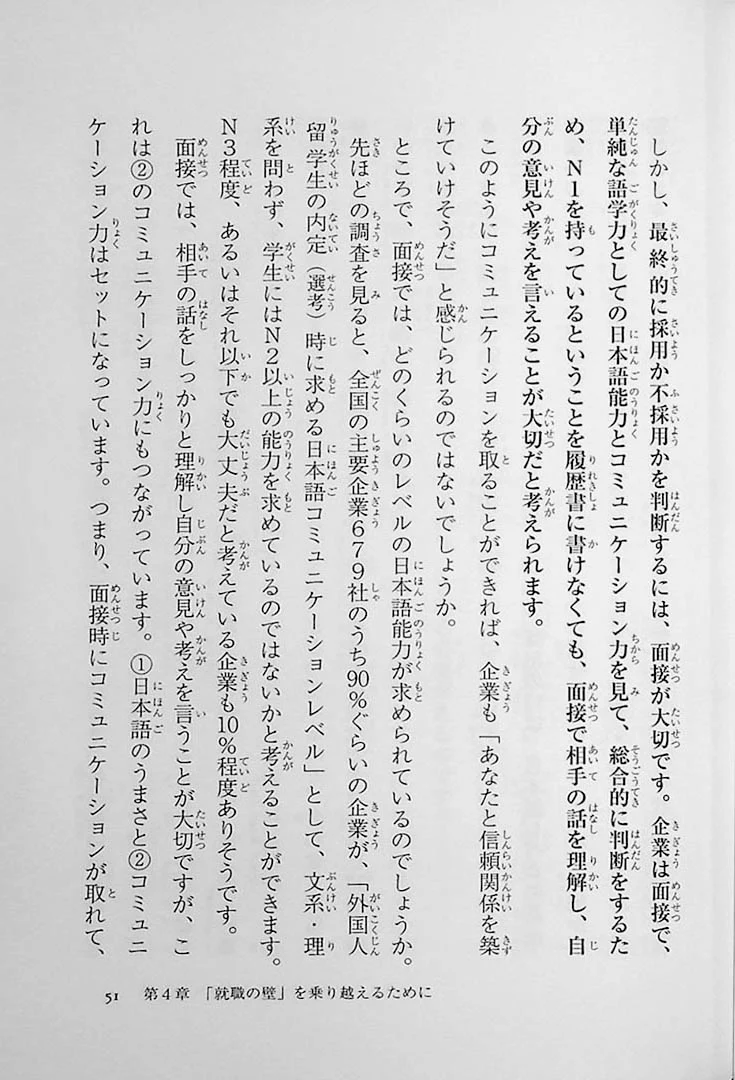 しかし、最終的に採用か不採用かを判断するには、面接が大切です。企業は面接で、
単純な語学力としての日本語能力とコミュニケーション力を見て、総合的に判断をするた
め、N1を持っているということを履歴書に書けなくても、面接で相手の話を理解し、自
分の意見や考えを言えることが大切だと考えられます。
このようにコミュニケーションを取ることができれば、企業も「あなたと信頼関係を築
けていけそうだ」と感じられるのではないでしょうか。
ところで、面接では、どのくらいのレベルの日本語能力が求められているのでしょうか。
先ほどの調査を見ると、全国の主要企業679社のうち90%ぐらいの企業が、「外国人
留学生の内定（選考）時に求める日本語コミュニケーションレベル」として、文系・理
系を問わず、学生にはN2以上の能力を求めているのではないかと考えることができます。
N3程度、あるいはそれ以下でも大丈夫だと考えている企業も10%程度ありそうです。
面接では、相手の話をしっかりと理解し自分の意見や考えを言うことが大切ですが、こ
れは②のコミュニケーション力にもつながっています。①日本語のうまさと②コミュニ
ケーション力はセットになっています。つまり、面接時にコミュニケーションが取れて、
51 第4章 「就職の壁」を乗り越えるために